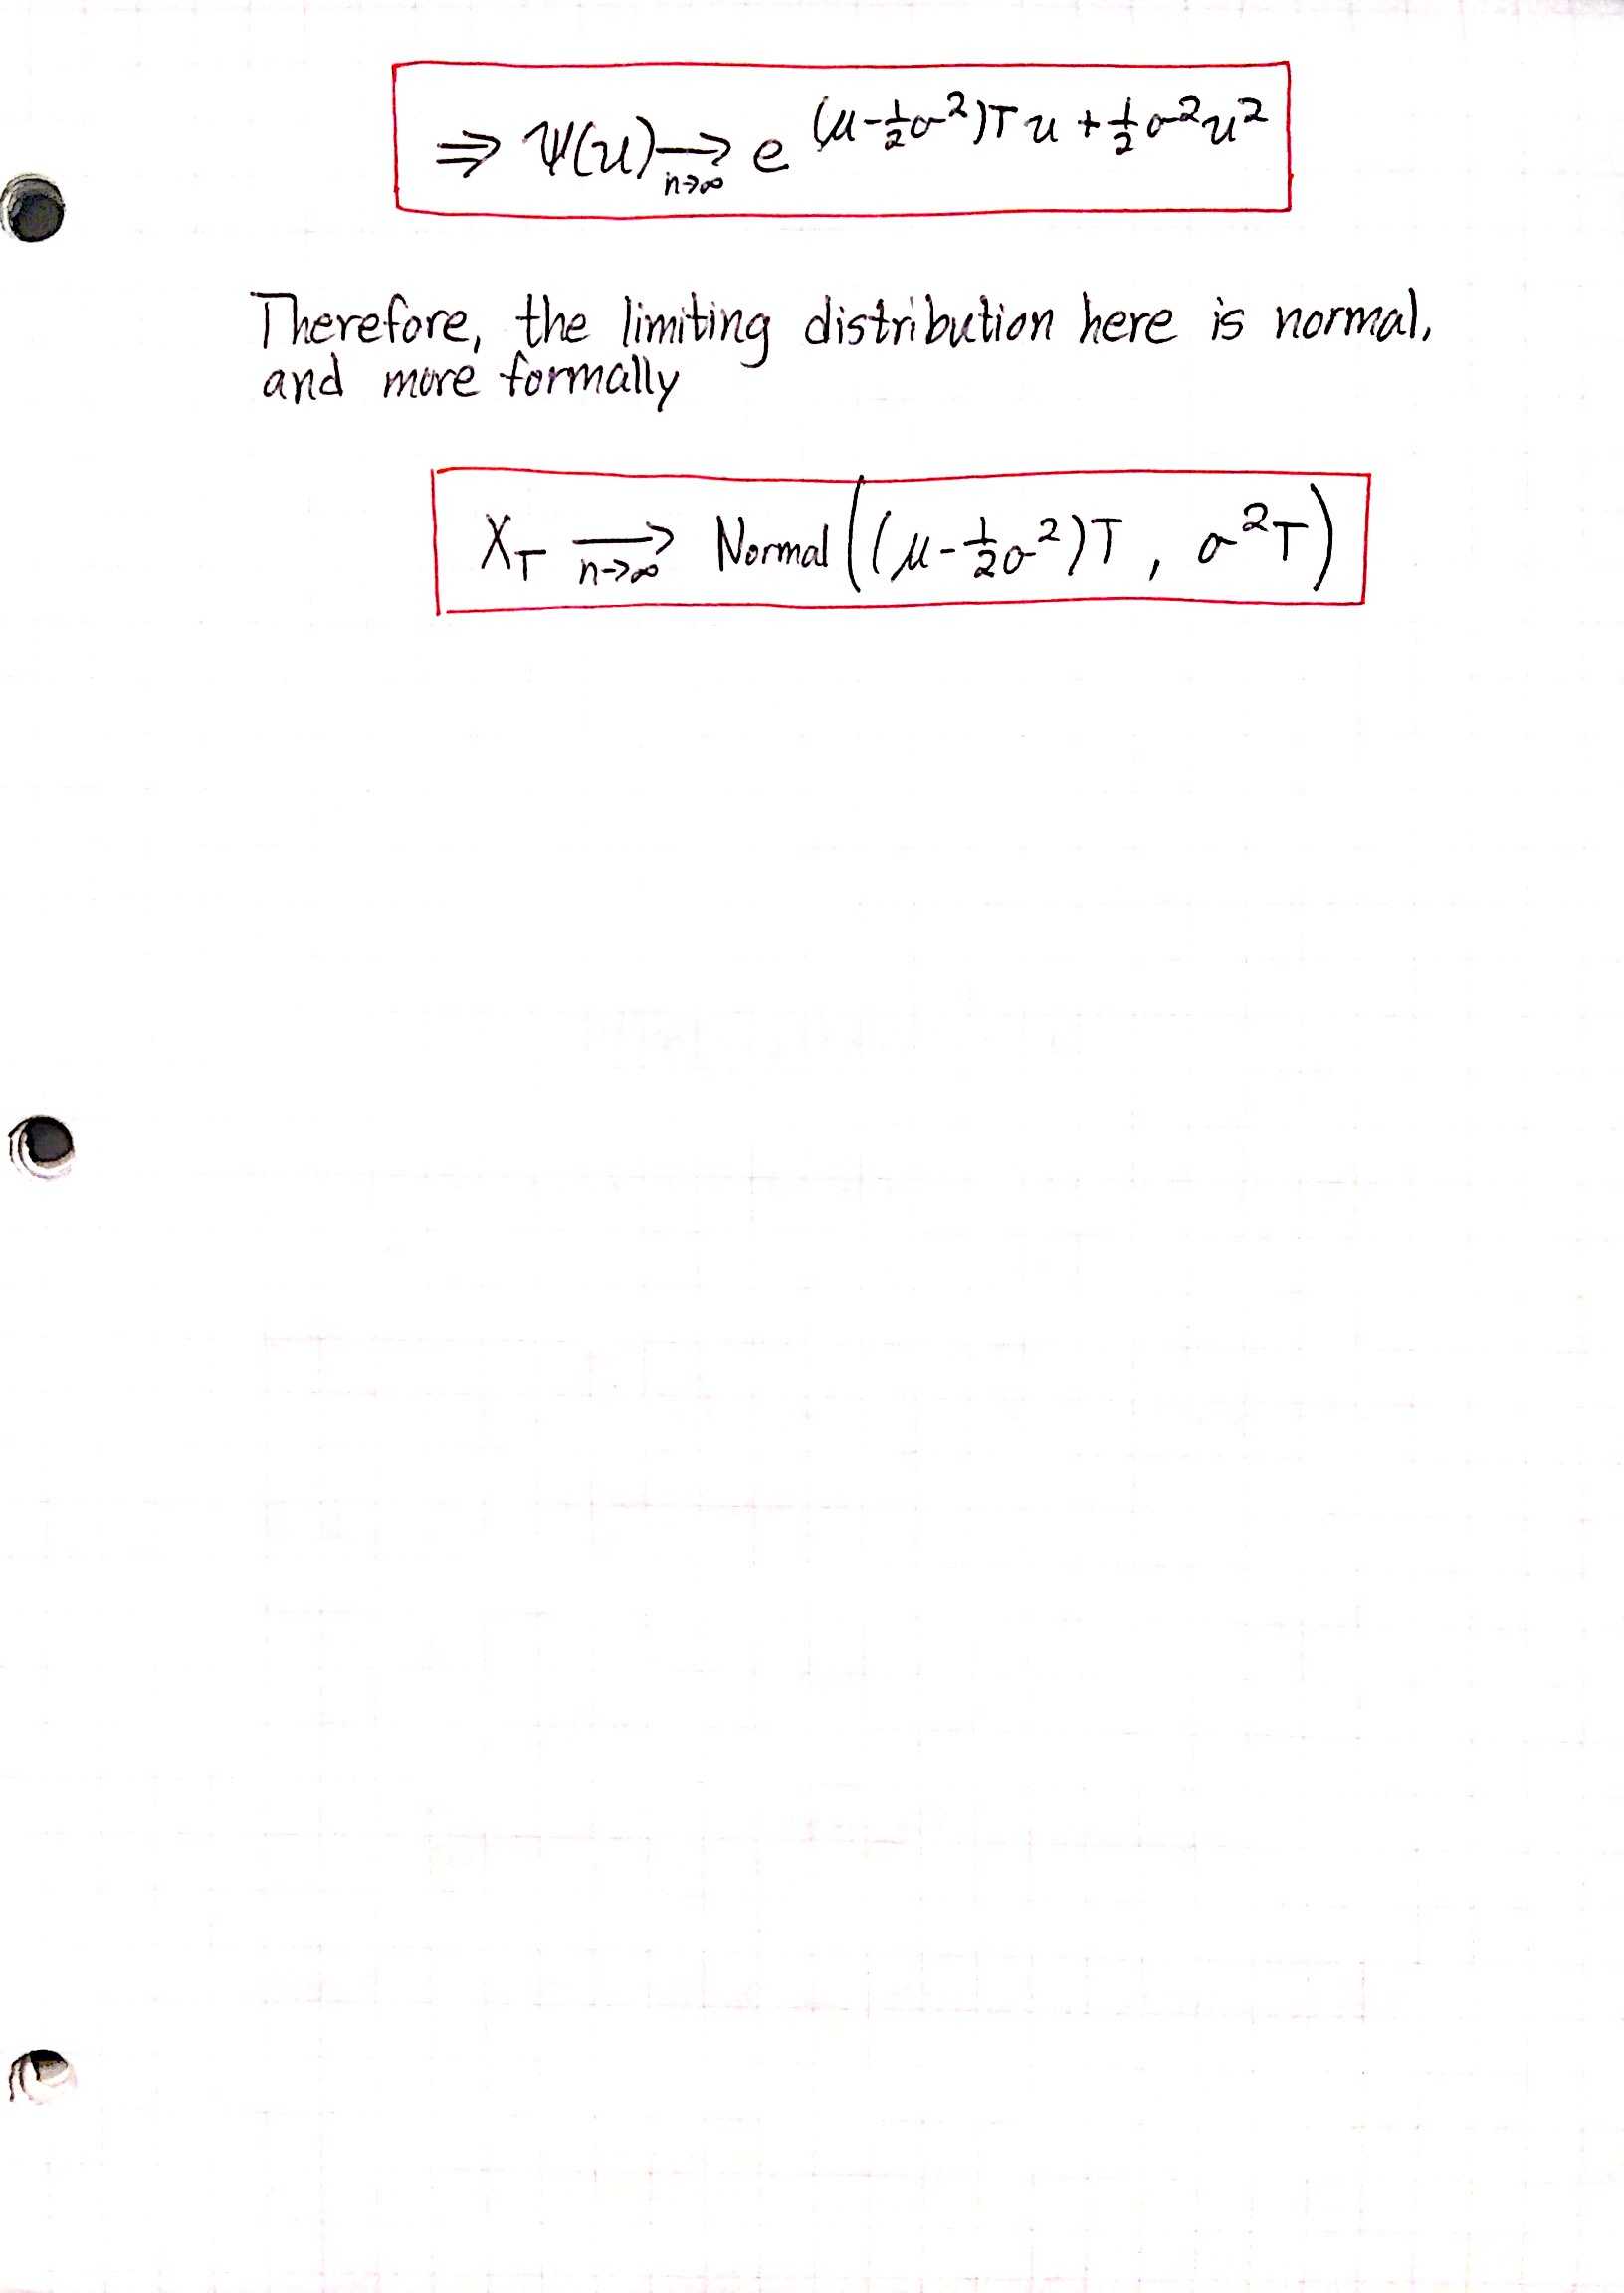 ⇒ Ψ(u) →_{n→∞} e^{(μ-½σ²)Tu + ½σ²u²}
Therefore, the limiting distribution here is normal,
and more formally
X_T →_{n→∞} Normal((μ-½σ²)T, σ²T)